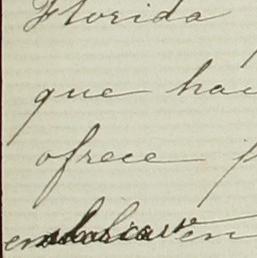 Florida
que hac
ofrece
en